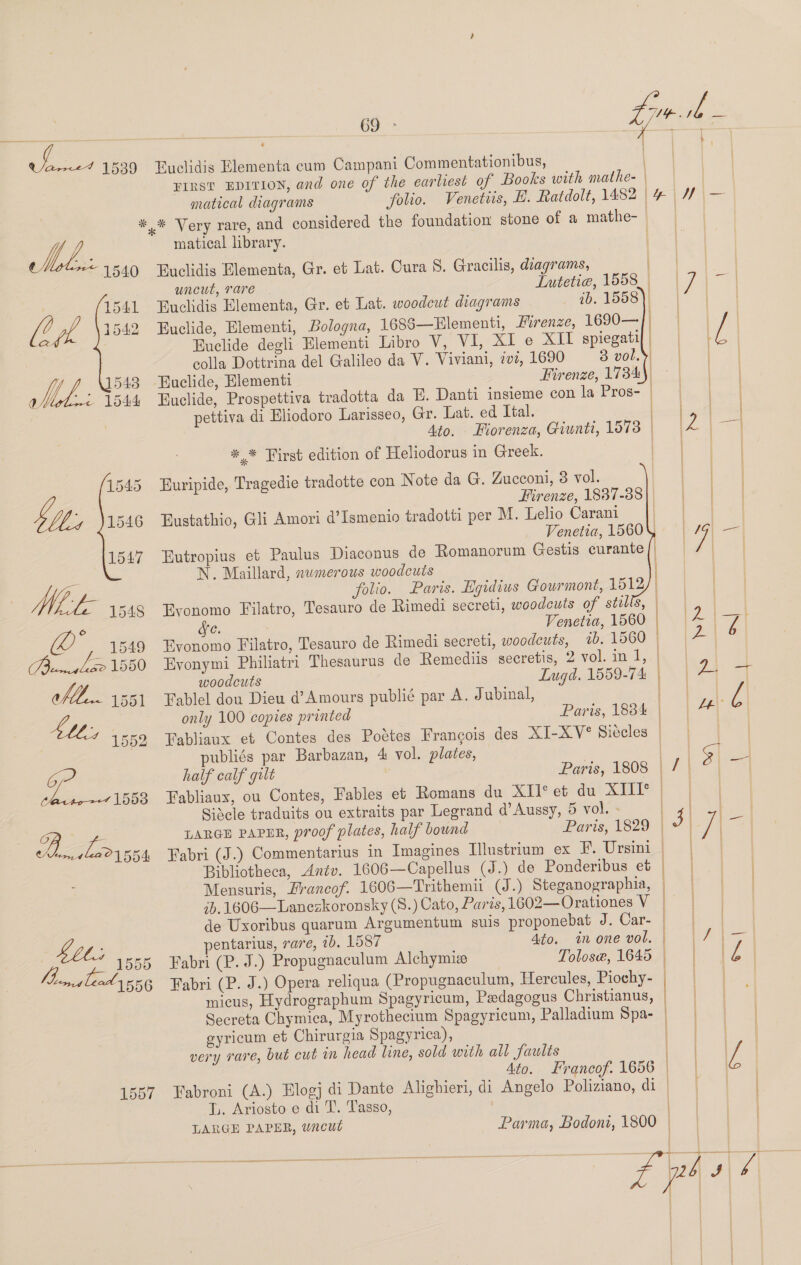 69
James 1539 Euclidis Elementa cum Campani Commentationibus,
FIRST EDITION, and one of the earliest of Books with mathe-
matical diagrams folio. Venetiis, E. Ratdolt, 1482 4 11 —
*** Very rare, and considered the foundation stone of a mathe-
matical library.
Molini 1540 Euclidis Elementa, Gr. et Lat. Cura S. Gracilis, diagrams,
uncut, rare Lutetiæ, 1558 7 —
1541 Euclidis Elementa, Gr. et Lat. woodcut diagrams ib. 1558
Cash 1542 Euclide, Elementi, Bologna, 1688—Elementi, Firenze, 1690—
Euclide degli Elementi Libro V, VI, XI e XII spiegati
colla Dottrina del Galileo da V. Viviani, ivi, 1690 3 vol.
1543 Euclide, Elementi Firenze, 1734
Molini 1544 Euclide, Prospettiva tradotta da E. Danti insieme con la Pros-
pettiva di Eliodoro Larisseo, Gr. Lat. ed Ital.
4to. Fiorenza, Giunti, 1573 2 —
*** First edition of Heliodorus in Greek.
1545 Euripide, Tragedie tradotte con Note da G. Zucconi, 3 vol.
Firenze, 1837-38
Ellis 1546 Eustathio, Gli Amori d'Ismenio tradotti per M. Lelio Carani
Venetia, 1560
1547 Eutropius et Paulus Diaconus de Romanorum Gestis curante
N. Maillard, numerous woodcuts
folio. Paris. Egidius Gourmont, 1512
White 1548 Evonomo Filatro, Tesauro de Rimedi secreti, woodcuts of stills,
&c. Venetia, 1560 2
Do 1549 Evonomo Filatro, Tesauro de Rimedi secreti, woodcuts, ib. 1560 2 6
Bumstead 1550 Evonymi Philiatri Thesaurus de Remediis secretis, 2 vol. in 1,
woodcuts Lugd. 1559-74 2 —
Allen 1551 Fablel dou Dieu d'Amours publié par A. Jubinal,
only 100 copies printed Paris, 1834 4 6
Ellis 1552 Fabliaux et Contes des Poëtes François des XI-XVe Siècles
publiés par Barbazan, 4 vol. plates,
half calf gilt Paris, 1808 1
1553 Fabliaux, ou Contes, Fables et Romans du XIIe et du XIIIe
Siècle traduits ou extraits par Legrand d'Aussy, 5 vol.
LARGE PAPER, proof plates, half bound Paris, 1829 3 7 —
Bumstead 1554 Fabri (J.) Commentarius in Imagines Illustrium ex F. Ursini
Bibliotheca, Antv. 1606—Capellus (J.) de Ponderibus et
Mensuris, Francof. 1606—Trithemii (J.) Steganographia,
ib. 1606—Lanczkoronsky (S.) Cato, Paris, 1602—Orationes V
de Uxoribus quarum Argumentum suis proponebat J. Car-
pentarius, rare, ib. 1587 4to. in one vol. 1 —
Ellis 1555 Fabri (P. J.) Propugnaculum Alchymiæ Tolosæ, 1645 6
Bumstead 1556 Fabri (P. J.) Opera reliqua (Propugnaculum, Hercules, Piochy-
micus, Hydrographum Spagyricum, Pædagogus Christianus,
Secreta Chymica, Myrothecium Spagyricum, Palladium Spa-
gyricum et Chirurgia Spagyrica),
very rare, but cut in head line, sold with all faults
4to. Francof. 1656 6
1557 Fabroni (A.) Elogj di Dante Alighieri, di Angelo Poliziano, di
L. Ariosto e di T. Tasso,
LARGE PAPER, uncut Parma, Bodoni, 1800